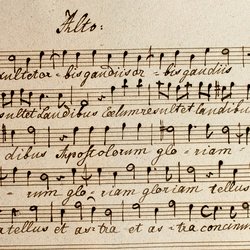 Alto:
sultet or- bis gaudiis or - bis gaudiis
sultet Laudibus Cœlum resultet laudibus
dibus Apostolorum glo - riam -
rum glo - riam gloriam tellus
tellus et as-tra et as-tra concinunt